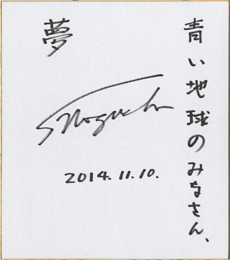 青い地球のみなさん、
夢
S Noguchi
2014.11.10.